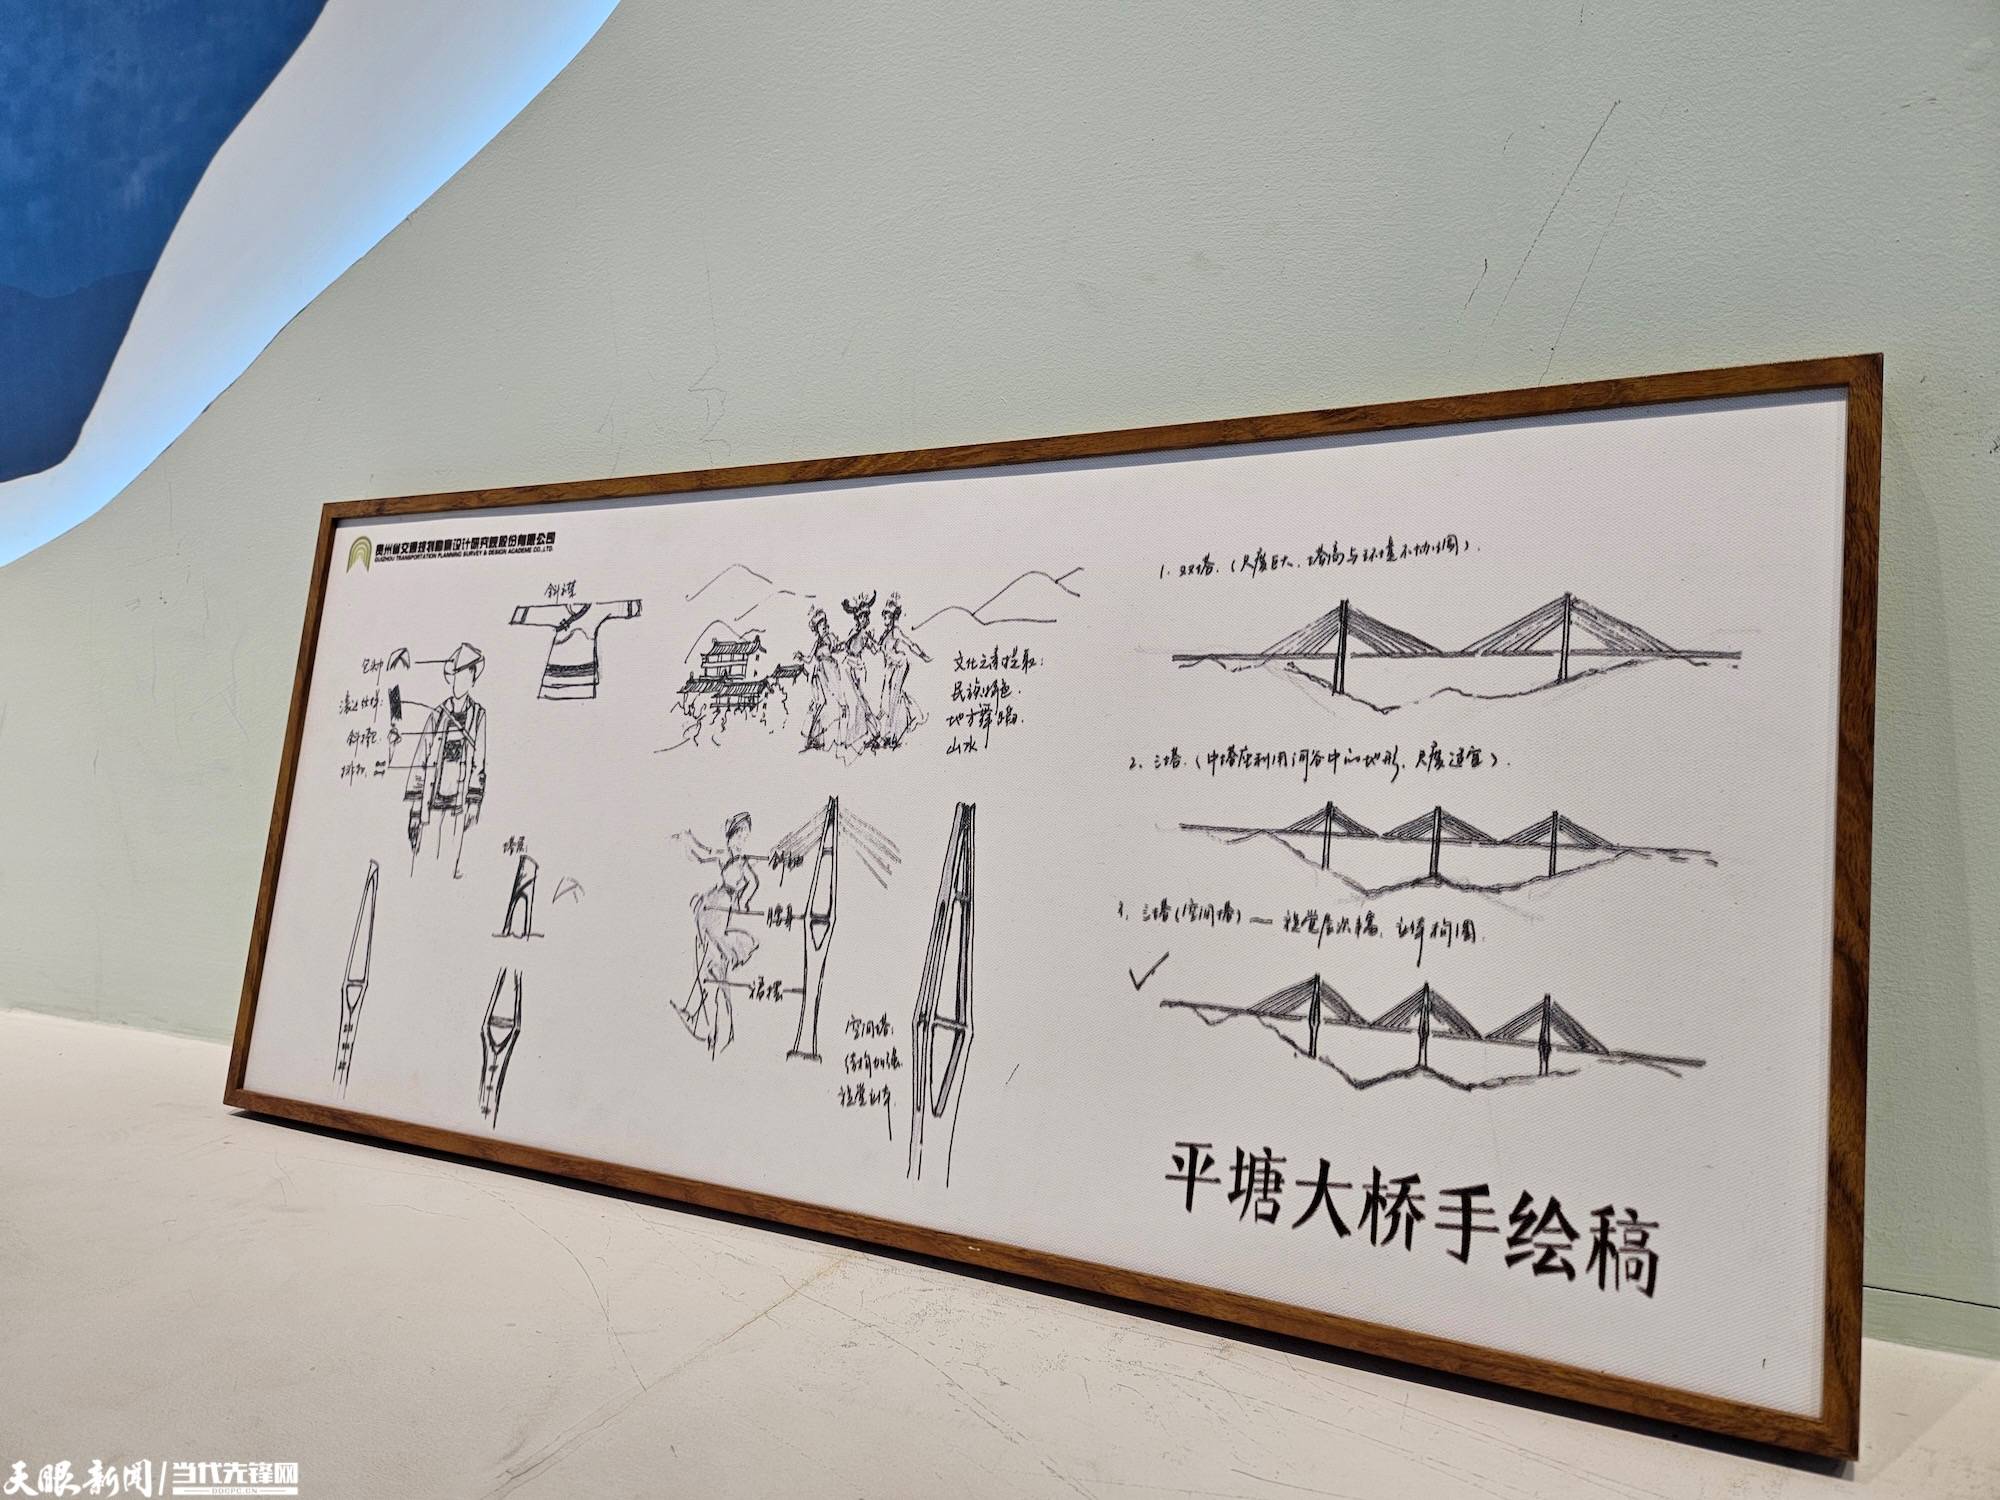 贵州省交通规划勘察设计研究院股份有限公司
GUIZHOU TRANSPORTATION PLANNING SURVEY & DESIGN ACADEME CO.,LTD.
斜襟
包帕
斜挎包
文化元素提取:
民族特色.
地方舞蹈.
山水
塔底
腰身
裙摆
空间塔:
结构加强.
视觉立体.
1. 双塔.(尺度巨大、塔高与环境不协调).
2. 三塔.(中塔在利用河谷中的地形,尺度适宜).
3. 三塔(空间塔) — 视觉层次丰富,立体构图.
平塘大桥手绘稿
天眼新闻/当代先锋网
DDCPC.CN